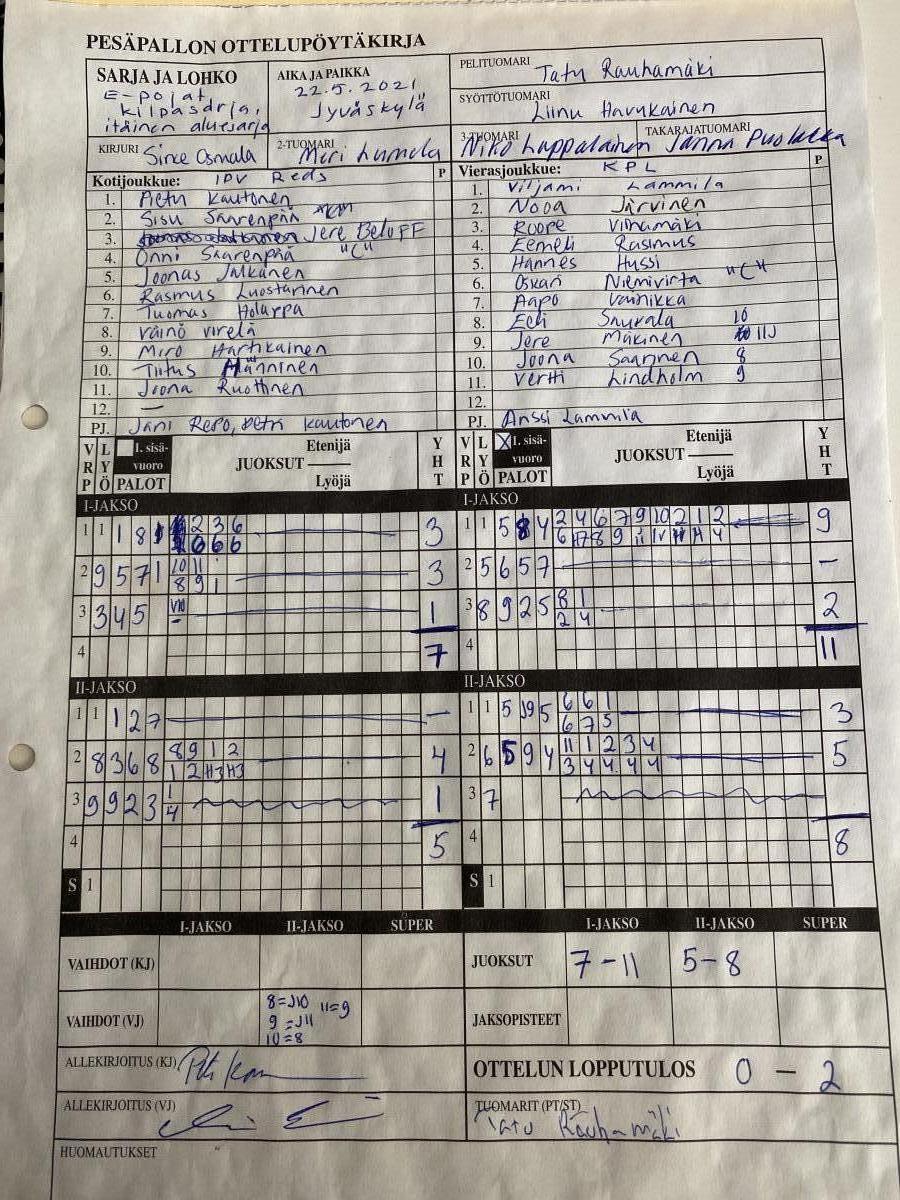 PESÄPALLON OTTELUPÖYTÄKIRJA
SARJA JA LOHKO
E-pojat,
kilpasarja,
itäinen aluesarja
AIKA JA PAIKKA
22.5.2021
Jyväskylä
PELITUOMARI Tatu Rauhamäki
SYÖTTÖTUOMARI Liinu Havukainen
KIRJURI Since Osmala
2-TUOMARI Meri Lumela
3-TUOMARI Niko Lappalainen
TAKARAJATUOMARI Janna Puolakka
Kotijoukkue: IPV Reds P
1. Pietu Kautonen
2. Sisu Saarenpää
3. Jere Beloff
4. Onni Saarenpää "C"
5. Joonas Jalkanen
6. Rasmus Luostarinen
7. Tuomas Holappa
8. Väinö Virelä
9. Miro Hartikainen
10. Tiitus Männinen
11. Joona Ruottinen
12. —
PJ. Jani Repo, Petri Kautonen
Vierasjoukkue: KPL P
1. Viljami Lammila
2. Nooa Järvinen
3. Roope Viinamäki
4. Eemeli Rasimus
5. Hannes Hussi
6. Oskari Niemivirta "C"
7. Aapo Vainikka
8. Eeli Sauvala 10
9. Jere Mäkinen 11J
10. Joona Saarinen 8
11. Vertti Lindholm 9
12.
PJ. Anssi Lammila
VRP LYÖ I. sisävuoro PALOT JUOKSUT Etenijä Lyöjä YHT
VRP LYÖ X I. sisävuoro PALOT JUOKSUT Etenijä Lyöjä YHT
I-JAKSO
1 1 1 8 2 3 6 3
6 6 6
2 9 5 7 1 10 11 3
8 9 1
3 3 4 5 1
4 7
I-JAKSO
1 1 5 8 4 2 4 6 7 9 10 2 1 2 9
2 5 6 5 7 —
3 8 9 2 5 8 1 2
2 4
4 11
II-JAKSO
1 1 1 2 7 —
2 8 3 6 8 8 9 1 2 4
1 2 H3 H3
3 9 9 2 3 1 1
4
4 5
S 1
II-JAKSO
1 1 5 J9 5 6 6 1 3
6 7 5
2 6 5 9 4 11 1 2 3 4 5
3 4 4 4 4
3 7
4 8
S 1
I-JAKSO II-JAKSO SUPER
VAIHDOT (KJ)
VAIHDOT (VJ)
8=J10 11=9
9=J11
10=8
I-JAKSO II-JAKSO SUPER
JUOKSUT 7-11 5-8
JAKSOPISTEET
ALLEKIRJOITUS (KJ)
ALLEKIRJOITUS (VJ)
OTTELUN LOPPUTULOS 0 — 2
TUOMARIT (PT/ST)
Tatu Rauhamäki
HUOMAUTUKSET